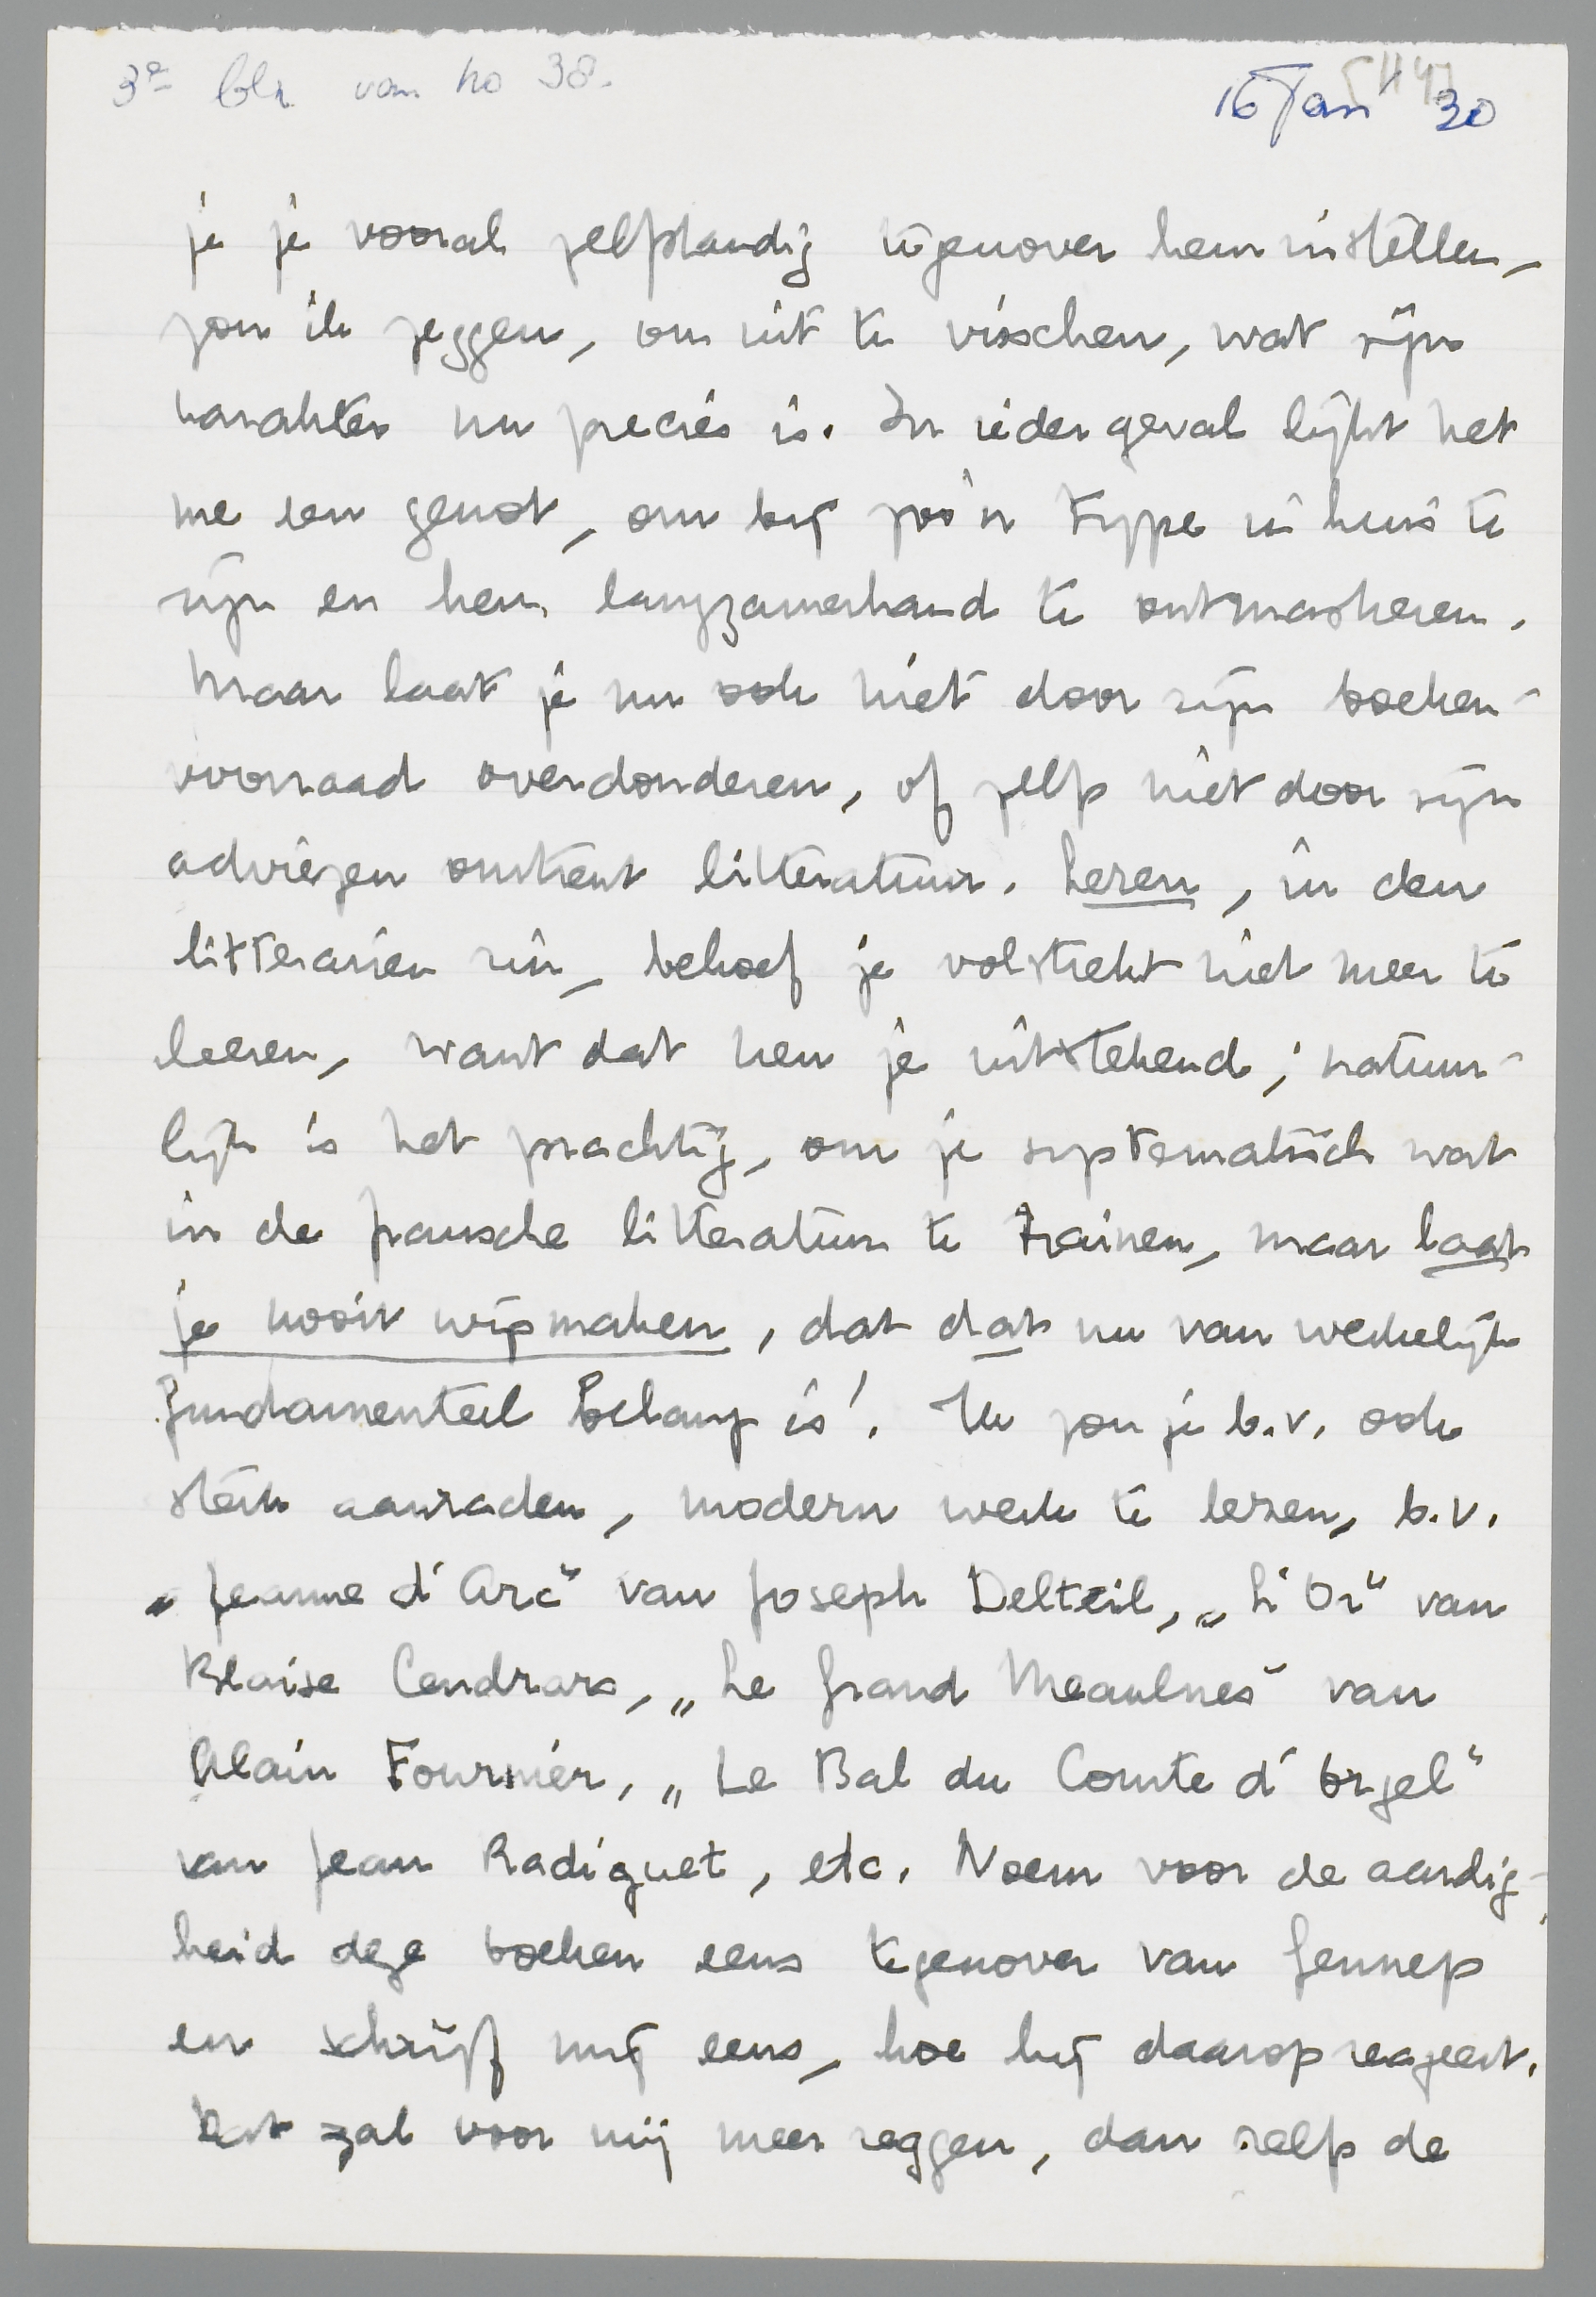 3e blz. van no 38.
16 Jan 30
je je vooral zelfstandig tegenover hem instellen,
zou ik zeggen, om uit te visschen, wat zijn
karakter nu precies is. In ieder geval lijkt het
me een genot, om bij zoo'n type in huis te
zijn en hem langzamerhand te ontmaskeren.
Maar laat je nu ook niet door zijn boeken-
voorraad overdonderen, of zelfs niet door zijn
adviezen omtrent litteratuur. Lezen, in den
litterairen zin, behoef je volstrekt niet meer te
leeren, want dat ken je uitstekend; natuur-
lijk is het prachtig, om je systematisch wat
in de fransche litteratuur te trainen, maar laat
je nooit wijsmaken, dat dat nu van werkelijk
fundamenteel belang is! Ik zou je b.v. ook
sterk aanraden, modern werk te lezen, b.v.
„Jeanne d'Arc" van Joseph Delteil, „L'Or" van
Blaise Cendrars, „Le Grand Meaulnes" van
Alain Fournier, „Le Bal du Comte d'Orgel"
van Jean Radiguet, etc. Noem voor de aardig-
heid deze boeken eens tegenover van Gennep
en schrijf mij eens, hoe hij daarop reageert.
Dat zal voor mij meer zeggen, dan zelfs de